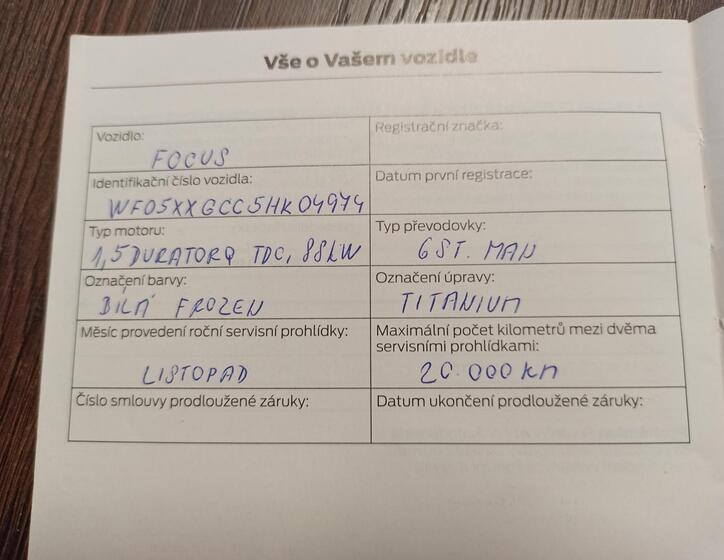 Vše o Vašem vozidle
Vozidlo:
FOCUS
Registrační značka:
Identifikační číslo vozidla:
WF05XXGCC5HK04974
Datum první registrace:
Typ motoru:
1,5 DURATORQ TDC, 88kW
Typ převodovky:
6ST. MAN
Označení barvy:
BÍLÁ FROZEN
Označení úpravy:
TITANIUM
Měsíc provedení roční servisní prohlídky:
LISTOPAD
Maximální počet kilometrů mezi dvěma
servisními prohlídkami:
20.000 km
Číslo smlouvy prodloužené záruky:
Datum ukončení prodloužené záruky: